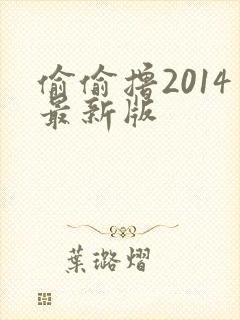 偷偷撸2014
最新版
葉璐熠